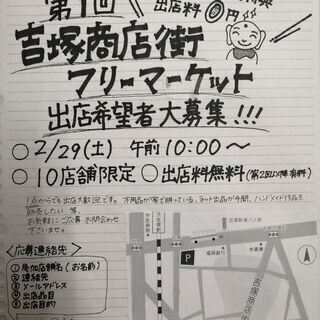 第1回
出店料
0円
吉塚商店街
フリーマーケット
出店希望者大募集!!!
○2/29(土) 午前10:00〜
○10店舗限定 ○出店料無料(第2回以降有料)
1点からでも出店大歓迎です。不用品が家で眠っている、ネット出品が面倒、ハンドメイド作品を
販売したい 等
お気軽にご応募お問合わせ
下さいませ。
<応募連絡先>
①参加店舗名(お名前)
②連絡先
③メールアドレス
④出店品目
⑤出店目的
P
福岡銀行
吉塚商店街